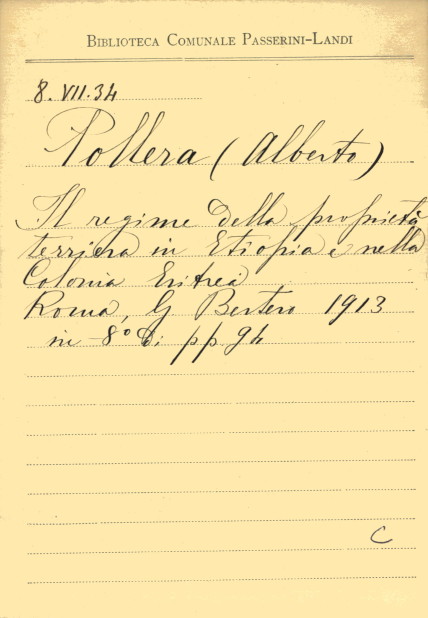 BIBLIOTECA COMUNALE PASSERINI-LANDI
8.VII.34
Pollera (Alberto)
Il regime della proprietà
terriera in Etiopia e nella
Colonia Eritrea
Roma, G Bertero 1913
in 8º di pp 94
C